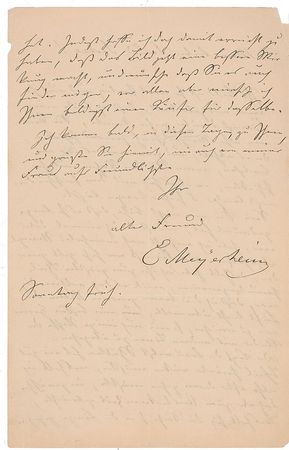 hat. Indeß hoffe ich doch damit erreicht zu
haben, daß das Bild jetzt eine bessere Wir
kung macht, und wünsche daß Sie es auch
finden mögen; vor allem aber wünsche ich
Ihnen baldigst einen Käufer für dasselbe.
Ich komme bald, in diesen Tagen zu Ihnen,
und grüße Sie hiermit, wie auch von meiner
Frau aufs Freundlichste
Ihr
alter Freund
E. Meyerheim
Sonntag früh.